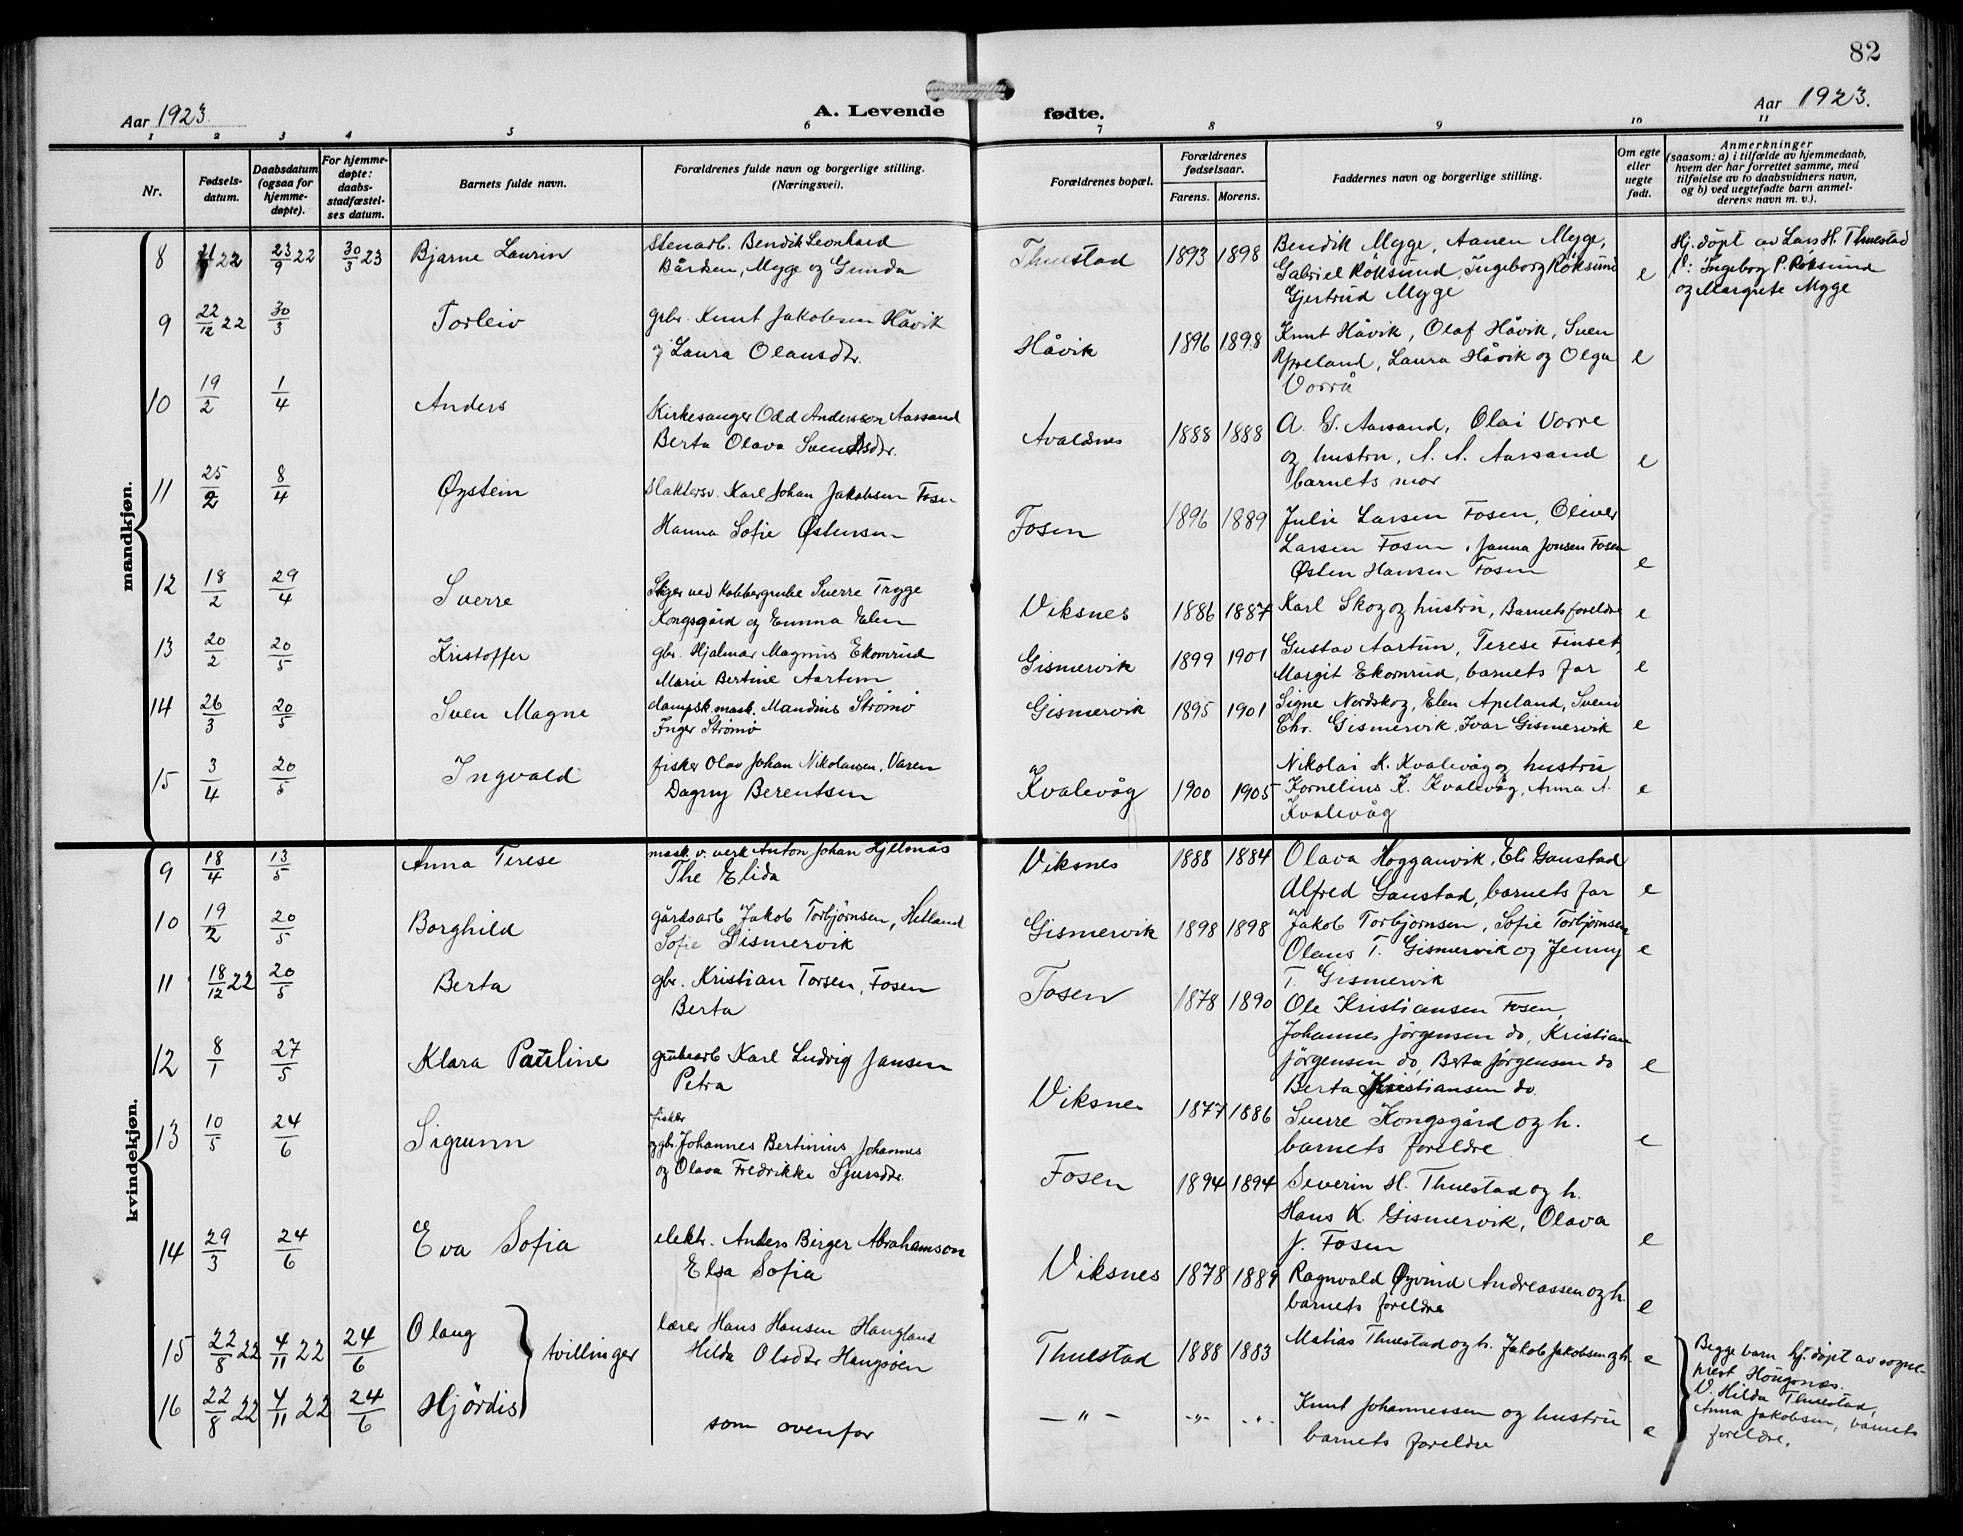 82
Aar 1923
A. Levende fødte.
Aar 1923.
1 2 3 4 5 6 7 8 9 10 11
Nr.
Fødsels-
datum.
Daabsdatum
(ogsaa for
hjemme-
døpte).
For hjemme-
døpte:
daabs-
stadfæstel-
ses datum.
Barnets fulde navn.
Forældrenes fulde navn og borgerlige stilling.
(Næringsvei).
Forældrenes bopæl.
Forældrenes
fødselsaar.
Farens. Morens.
Faddernes navn og borgerlige stilling.
Om egte
eller
uegte
født.
Anmerkninger
(saasom: a) i tilfælde av hjemmedaab,
hvem der har forrettet samme, med
tilføielse av to daabsvidners navn,
og b) ved uegtefødte barn anmel-
derens navn m. v.).
mandkjøn.
8 22 23/9 22 30/3 23 Bjarne Laurin
Stenarb. Bendik Leonhard
Bårdsen, Mygge og Gunda
Thuestad 1893 1898
Bendik Mygge, Aanen Mygge,
Gabriel Röksund, Ingeborg Röksund
Gjertrud Mygge
e
Hj. døpt av Lars H. Thuestad
V: Ingeborg P. Röksund
og Margrete Mygge
9 22/12 22 30/3 Torleiv
gbr. Knut Jakobsen Håvik
og Laura Olausdtr.
Håvik 1896 1898
Knut Håvik, Olaf Håvik, Sven
Ypreland, Laura Håvik og Olga
Vorrå
e
10 19/2 1/4 Anders
Kirkesanger Odd Anderson Aarsand
Berta Olava Svendsdtr.
Avaldnes 1888 1888
A. G. Aarsand, Olai Vorre
og hustru, A. A. Aarsand
barnets mor
e
11 25/2 8/4 Øystein
Slaktersv. Karl Johan Jakobsen Fosen
Hanna Sofie Østensen
Fosen 1896 1889
Julie Larsen Fosen, Oliver
Larsen Fosen, Janna Jonsen Fosen
Østen Hansen Fosen
e
12 18/2 29/4 Sverre
Stiger ved Kobbergrube Sverre Tryge
Kongsgård og Emma Elen
Viksnes 1886 1887
Karl Skog og hustru, Barnets foreldre
e
13 20/2 20/5 Kristoffer
gbr. Hjalmar Magnus Ekornrud
Marie Bertine Aartun
Gismervik 1899 1901
Gustav Aartun, Terese Finset,
Margit Ekornrud, barnets far
e
14 26/3 20/5 Sven Magne
dampsk. mask. Mandius Strømø
Inger Strømø
Gismervik 1895 1901
Signe Nordskog, Elen Apeland, Svend
Chr. Gismervik, Ivar Gismervik
e
15 3/4 20/5 Ingvald
fisker Olav Johan Nikolassen, Våren
Dagny Berentsen
Kvalevåg 1900 1905
Nikolai K. Kvalevåg og hustru
Kornelius K. Kvalevåg, Anna N.
Kvalevåg
e
kvindekjøn.
9 18/4 13/5 Anna Terese
mask. v. verk Anton Johan Hjelmås
The Elida
Viksnes 1888 1884
Olava Hogganvik, Eli Gaustad
Alfred Gaustad, barnets far
e
10 19/2 20/5 Borghild
gårdsarb Jakob Torbjørnsen, Hetland
Sofie Gismervik
Gismervik 1898 1898
Jakob Torbjørnsen, Sofie Torbjørnsen
Olaus T. Gismervik og Jenny
T. Gismervik
e
11 18/12 22 20/5 Berta
gbr. Kristian Torsen, Fosen
Berta
Fosen 1878 1890
Ole Kristiansen Fosen,
Johannes Jørgensen do, Kristian
Jørgensen do, Berta Jørgensen do
Berta Kristiansen do.
e
12 8/1 27/5 Klara Pauline
grubearb Karl Ludvig Jansen
Petra
Viksnes 1877 1886
Sverre Kongsgård og h.
barnets foreldre
e
13 10/5 24/6 Sigrunn
fisker
og gbr. Johannes Bertinius Johannes
og Olava Fredrikke Sjursdtr.
Fosen 1894 1894
Severin H. Thuestad og h.
Hans K. Gismervik, Olava
J. Fosen
e
14 29/3 24/6 Eva Sofia
elektr. Anders Birger Abrahamson
Elsa Sofia
Viksnes 1878 1889
Ragnvald Øyvind Andreassen og h
barnets foreldre
e
15 22/8 22 4/11 22 24/6 Olaug
tvillinger
lærer Hans Hansen Haugland
Hilda Olsdtr Haugsøen
Thuestad 1888 1883
Matias Thuestad og h. Jakob Jakobsen og h.
e
Begge barn hj. døpt av sogne-
prest Hougsnæs.
V. Hilda Thuestad,
Anna Jakobsen, barnets
foreldre.
16 22/8 22 4/11 22 24/6 Hjördis
som ovenfor
— " — - " - - " -
Knut Johannessen og hustru
barnets foreldre
e